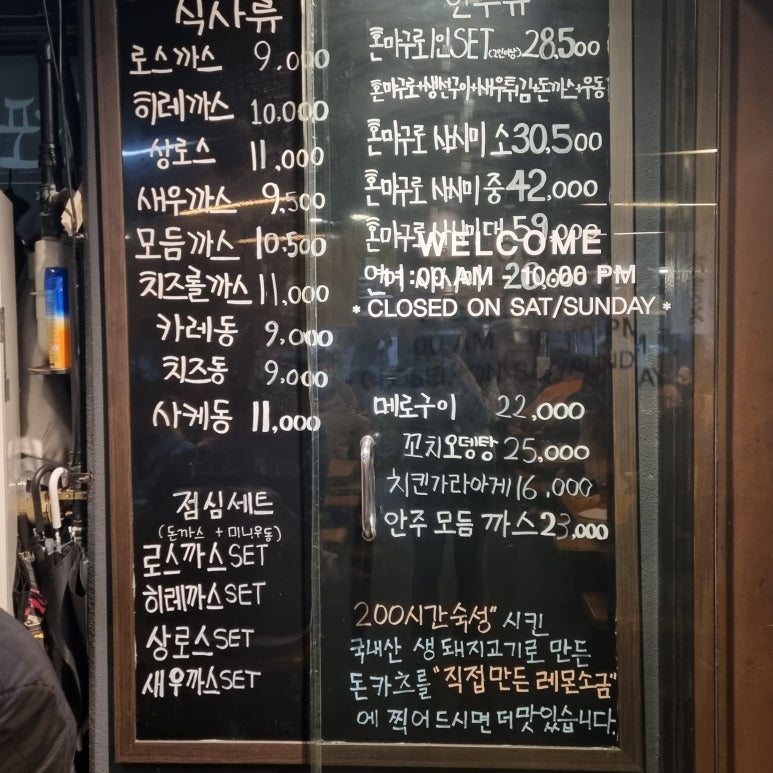 식사류
로스까스 9.000
히레까스 10.000
상로스 11,000
새우까스 9,500
모듬까스 10.500
치즈롤까스 11,000
카레동 9,000
치즈동 9,000
사케동 11,000
점심세트
(돈까스 + 미니우동)
로스까스 SET
히레까스 SET
상로스 SET
새우까스 SET
안주류
혼마구로 1인 SET 28,500
혼마구로+생선구이+새우튀김+돈까스+우동
혼마구로 사시미 소 30.500
혼마구로 사시미 중 42,000
혼마구로 사시미 대 59,000
연어
WELCOME
:00 AM 10:00 PM
* CLOSED ON SAT/SUNDAY *
메로구이 22,000
꼬치오뎅탕 25,000
치킨가라아게 16,000
안주 모듬 까스 23,000
200시간숙성" 시킨
국내산 생 돼지고기로 만든
돈카츠를 "직접만든 레몬소금"
에 찍어드시면 더맛있습니다.